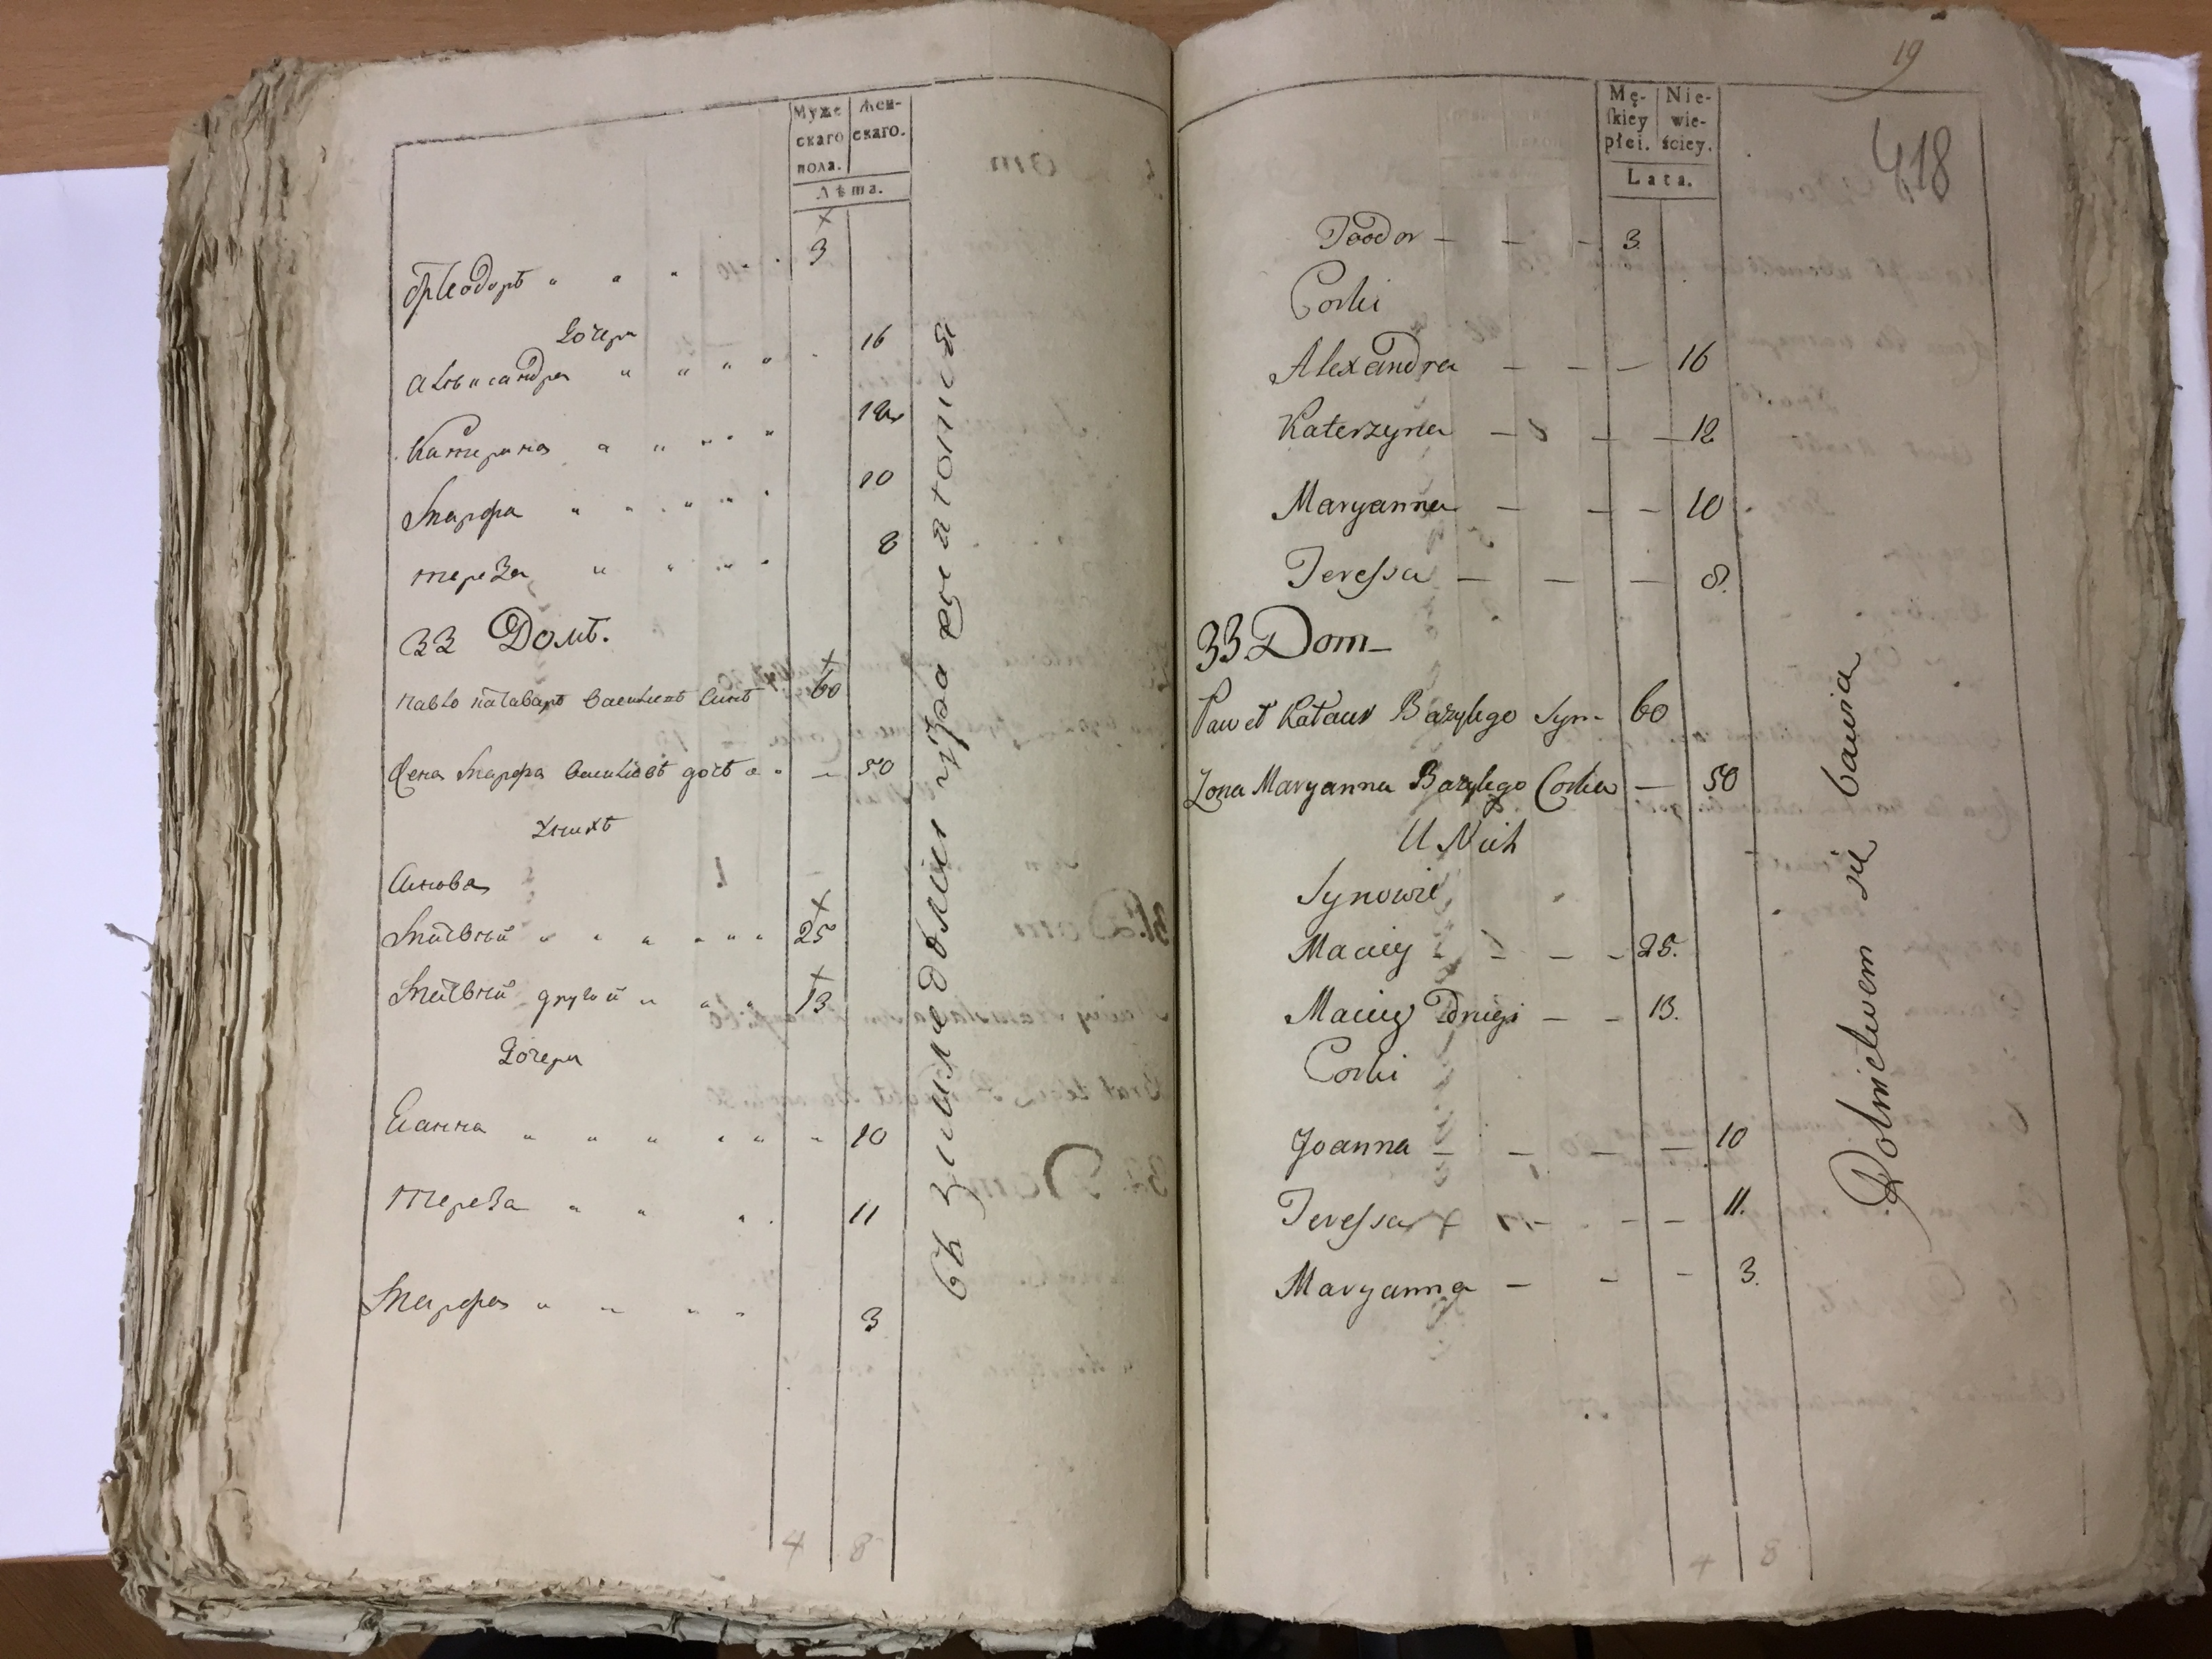 Муже
скаго
пола.
Жен-
скаго.
Лѣта.
Ѳеодоръ 3
Дочери
Александра 16
Катерина 12
Марфа 10
Тереза 8
33 Домъ.
Павло Василевъ Синъ 60
Жена Марфа Василіевъ доч 50
У нихъ
Синова
Матвѣй 25
Матвѣй другой 13
Дочери
Еанна 10
Тереза 11
Марфа 3
19
418
Mę-
skiey
płci.
Nie-
wie-
ściey.
Lata.
Teodor - - - 3.
Corki
Alexandra - - - 16
Katerzyna - - - 12
Maryanna - - - 10
Teressa - - - 8.
33 Dom
Paweł Kataur Bazylego Syn - 60
Zona Maryanna Bazylego Corka - 50
U Nich
Synowie
Maciey - - - 25.
Maciey Drugi - - 13.
Corki
Joanna - - - - 10
Teressa - - - 11.
Maryanna - - - 3.
Rolnictwem się bawia
4 8
4 8